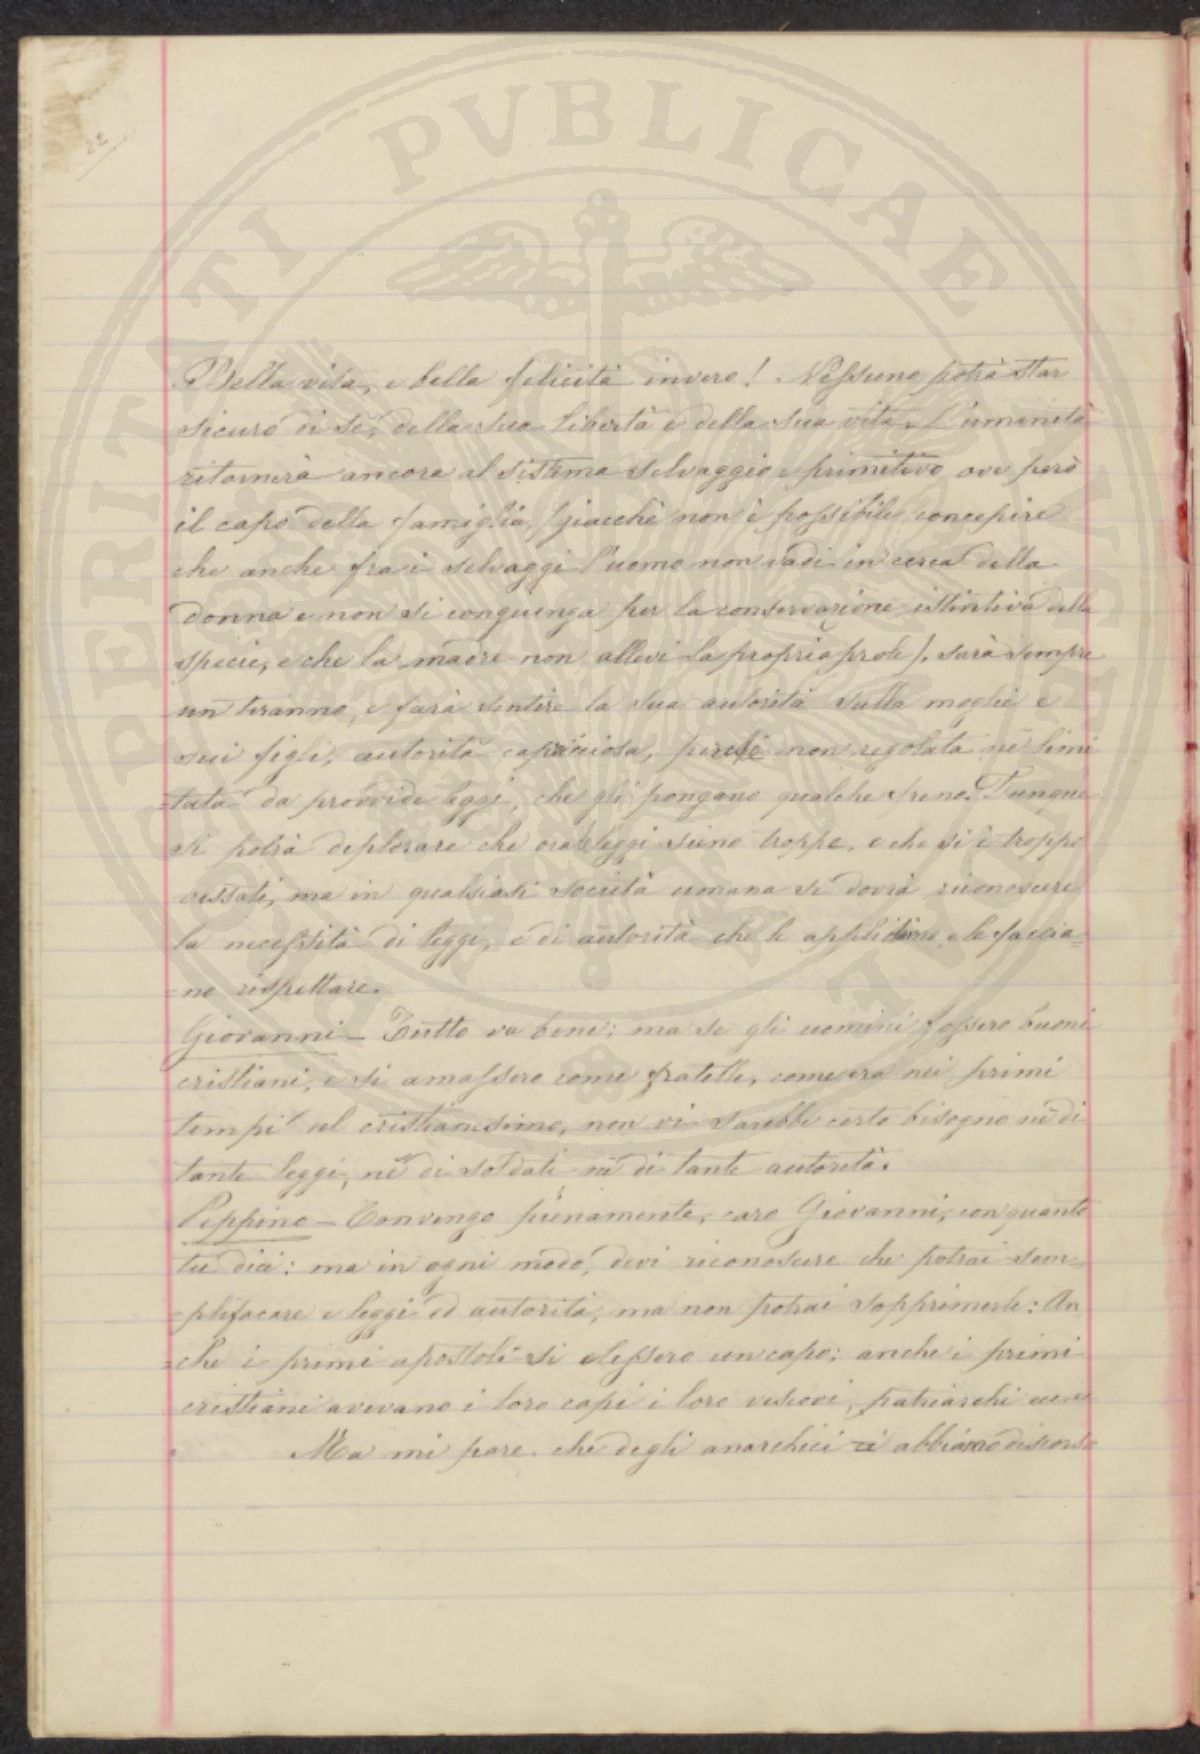 22
PVBLICAE
PERITATI
Bella vita, e bella felicità invero! Nessuno potrà star
sicuro di sè, della sua libertà e della sua vita. L'umanità
ritornerà ancora al sistema selvaggio e primitivo ove però
il capo della famiglia, (giacchè non è possibile concepire
che anche fra i selvaggi l'uomo non vadi in cerca della
donna e non si conguinga per la conservazione istintiva della
specie, e che la madre non allevi la propria prole). sarà sempre
un tiranno, e farà sentire la sua autorità sulla moglie e
sui figli, autorità capricciosa, perchè non regolata nè limi
tata da provvide leggi, che gli pongano qualche freno. Dunque
si potrà deplorare che ora le leggi sieno troppe, e che si è troppo
vessati, ma in qualsiasi società umana si dovrà riconoscere
la necessità di leggi, e di autorità che le applichino e le faccia=
=no rispettare.
Giovanni – Tutto va bene: ma se gli uomini fossero buoni
cristiani, e si amassero come fratelli, come era nei primi
tempi del cristianesimo, non vi sarebbe certo bisogno nè di
tante leggi, nè di soldati nè di tante autorità.
Peppino – Convengo pienamente, caro Giovanni, con quanto
tu dici: ma in ogni modo, devi riconoscere che potrai sem=
=plifacare e leggi ed autorità, ma non potrai sopprimerle: An
=che i primi apostoli si elessero un capo; anche i primi
cristiani avevano i loro capi i loro vescovi, patriarchi ecc.
Ma mi pare che degli anarchici ci abbiamo discorso